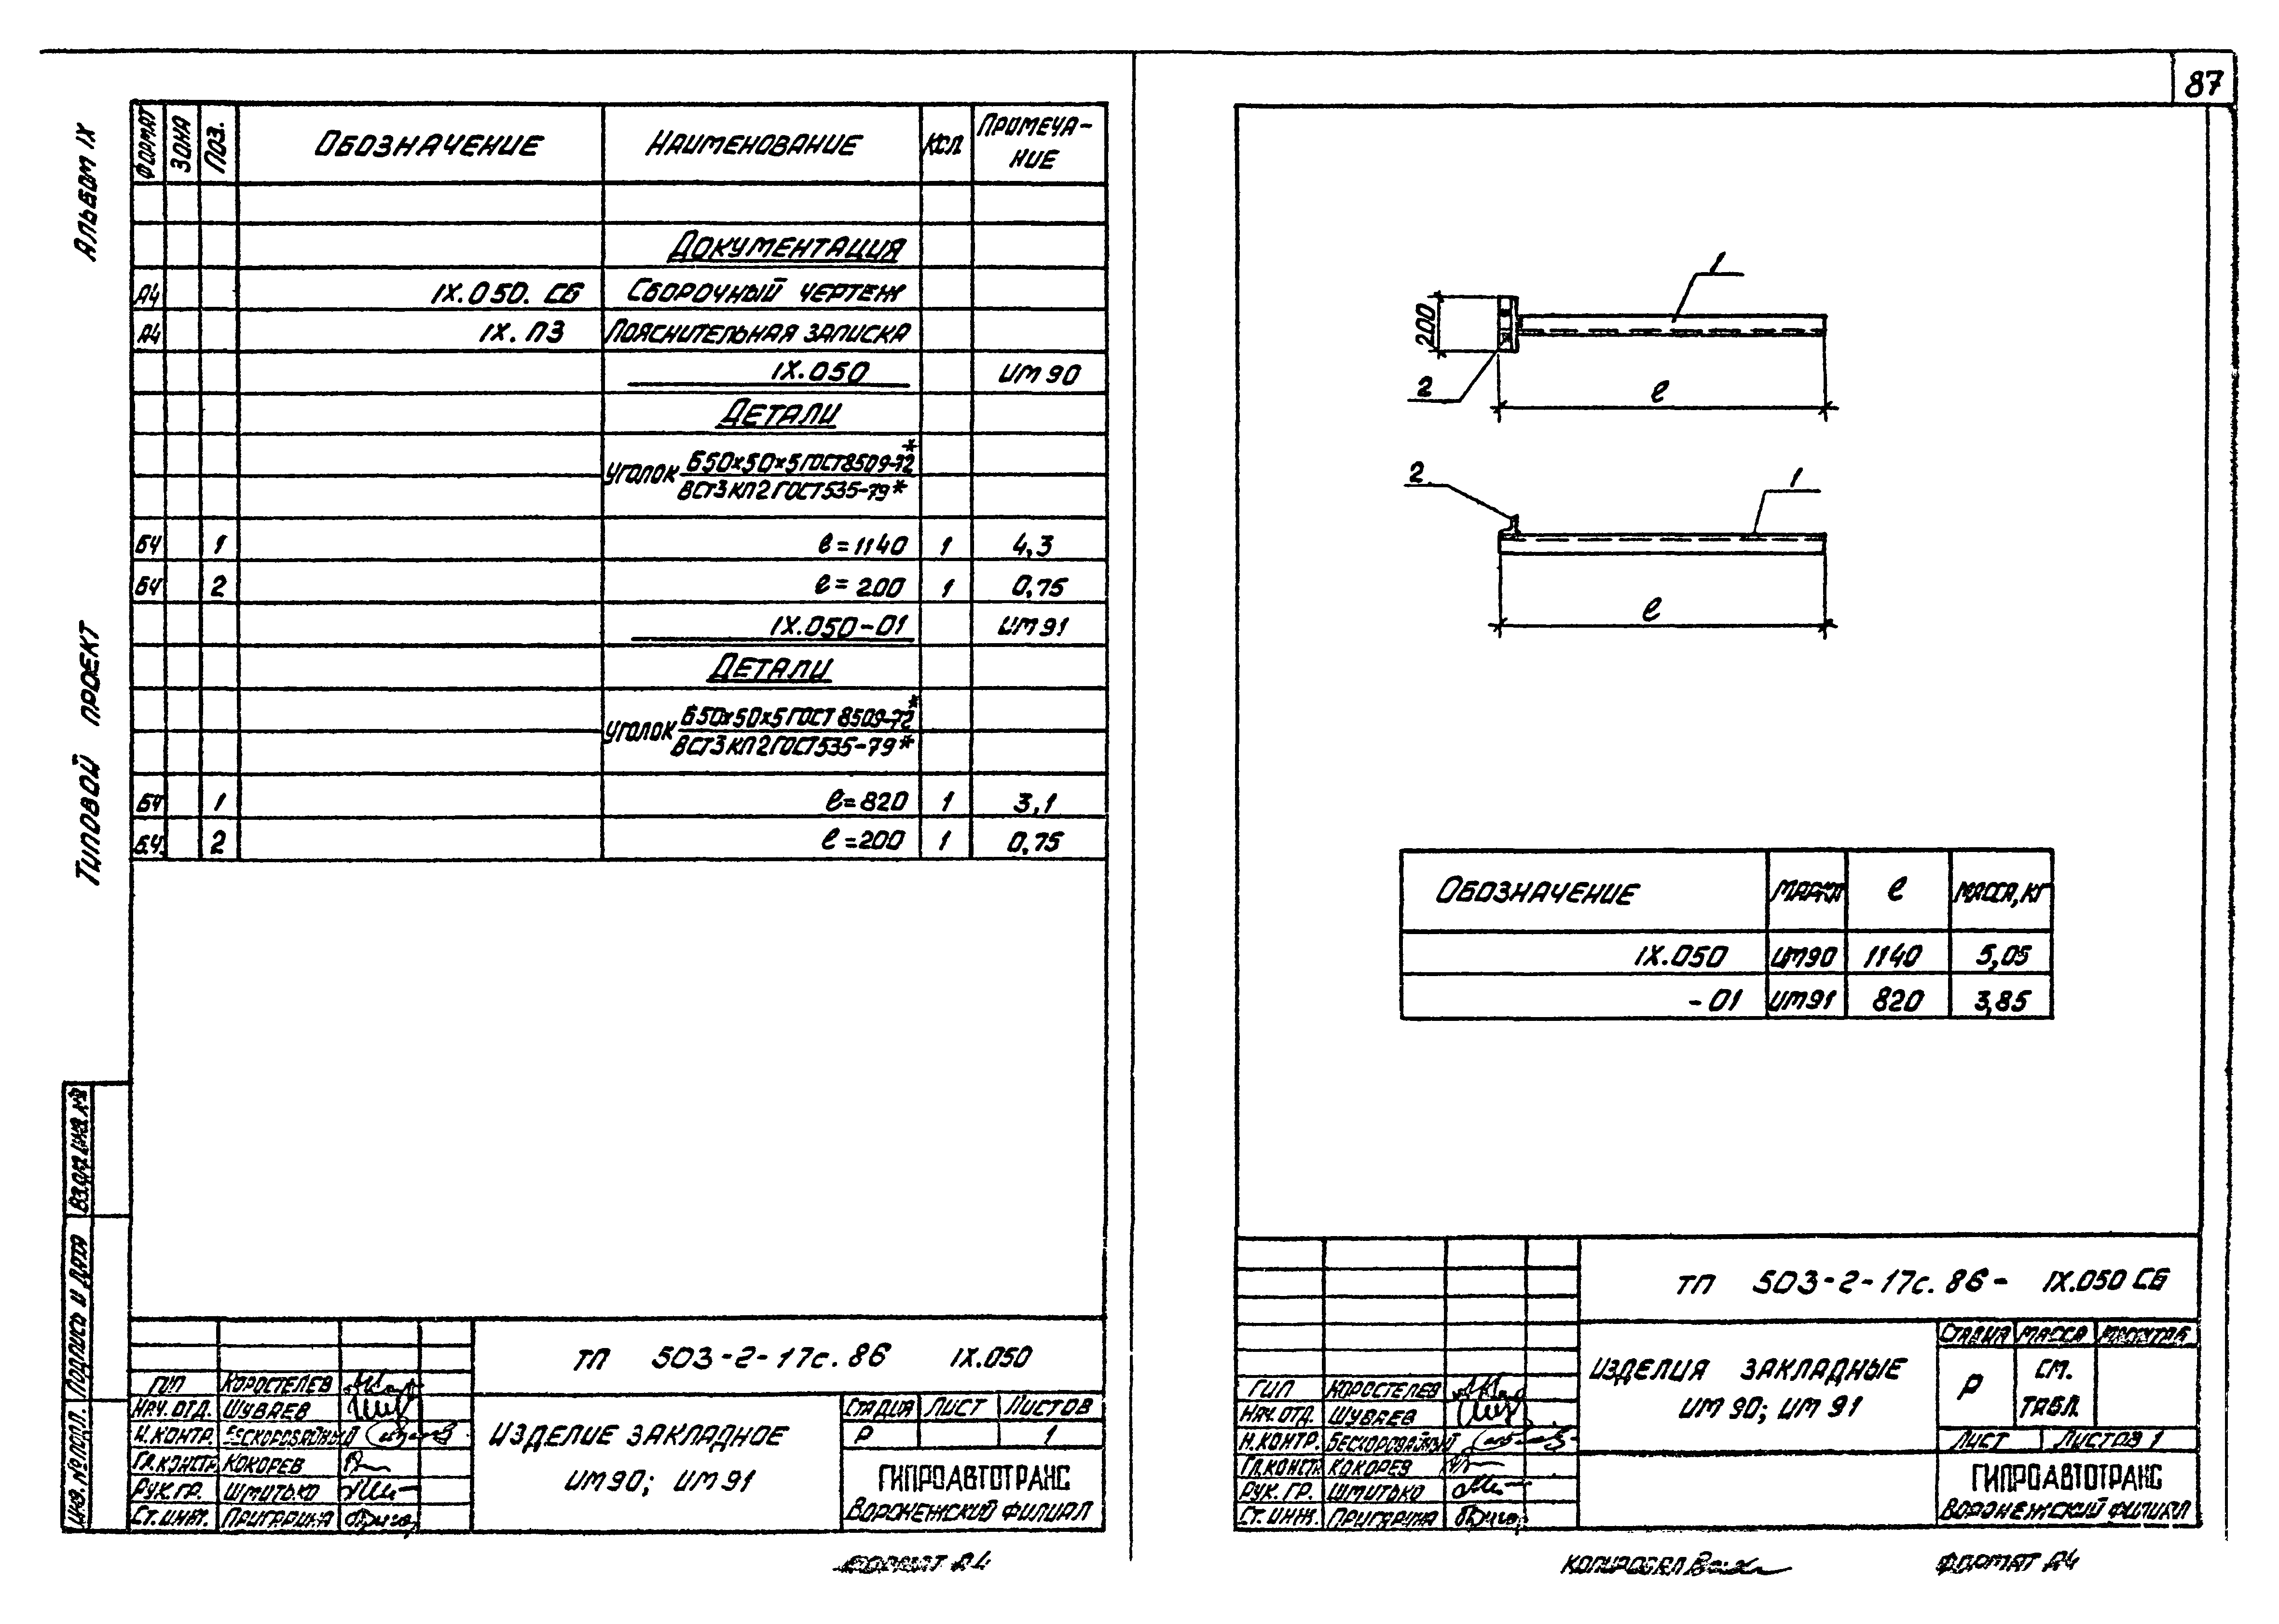 87
Альбом IX
Типовой проект
Формат Зона Поз. Обозначение Наименование Кол Примеча-
ние
Документация
А4 IX.050. СБ Сборочный чертеж
А4 IX. ПЗ Пояснительная записка
IX.050 ИМ 90
Детали
Уголок Б50х50х5 ГОСТ 8509-72*
ВСт3КП2 ГОСТ 535-79*
БЧ 1 ℓ=1140 1 4,3
БЧ 2 ℓ=200 1 0,75
IX.050-01 ИМ 91
Детали
Уголок Б50х50х5 ГОСТ 8509-72*
ВСт3КП2 ГОСТ 535-79*
БЧ 1 ℓ=820 1 3,1
Б.Ч. 2 ℓ=200 1 0,75
Взам. инв. №
Подпись и дата
Инв. № подл.
ТП 503-2-17с. 86 IX.050
ГИП Коростелев
Нач. отд. Шуваев
Н. контр. Бескоровайный
Гл. констр. Кокорев
Рук. гр. Шмитько
Ст. инж. Пригарина
Изделие закладное
ИМ 90; ИМ 91
Стадия Лист Листов
Р 1
ГИПРОАВТОТРАНС
Воронежский филиал
Формат А4
1
200
2
ℓ
2
1
ℓ
Обозначение Марка ℓ Масса, кг
IX.050 ИМ90 1140 5,05
-01 ИМ91 820 3,85
ТП 503-2-17с. 86- IX.050 СБ
ГИП Коростелев
Нач. отд. Шуваев
Н. контр. Бескоровайный
Гл. констр Кокорев
Рук. гр. Шмитько
Ст. инж. Пригарина
Изделия закладные
ИМ 90; ИМ 91
Стадия Масса Масштаб
Р См.
табл.
Лист Листов 1
ГИПРОАВТОТРАНС
Воронежский филиал
Копировал
Формат А4